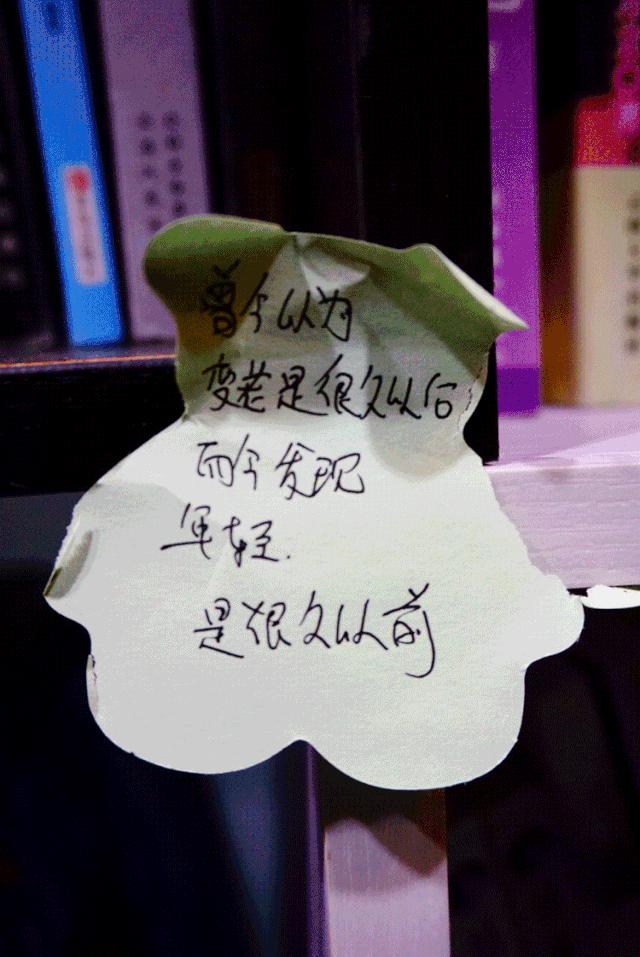 曾今以为
变老是很久以后
而今发现
年轻.
是很久以前